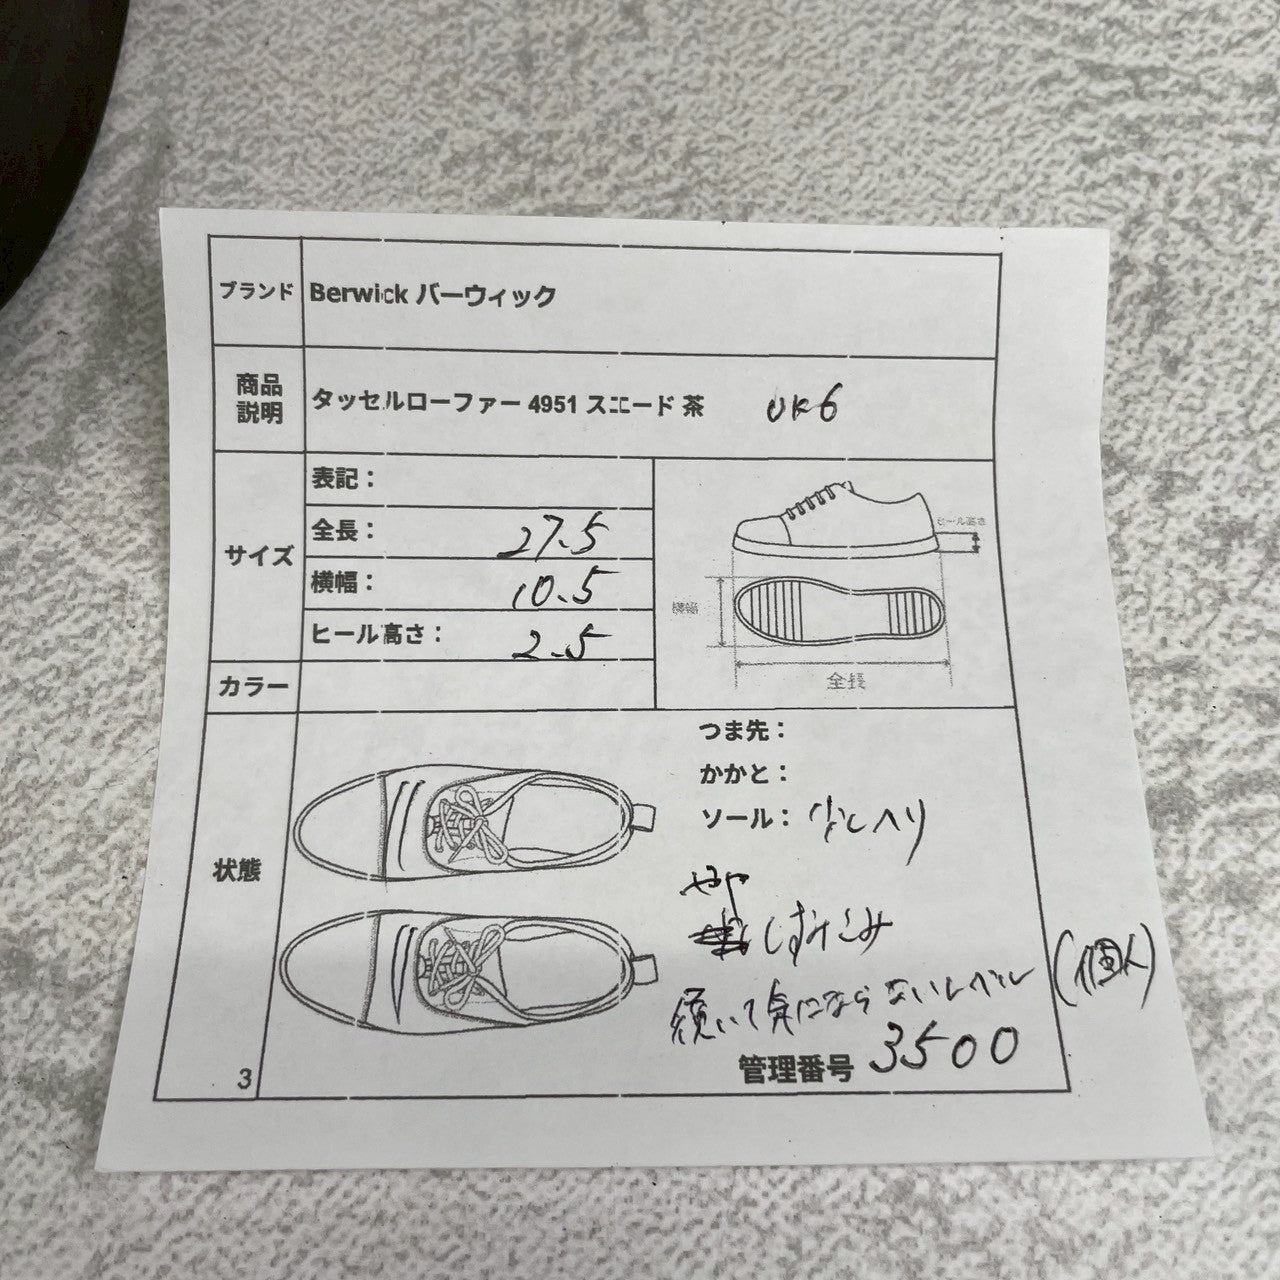 ブランド Berwick バーウィック
商品
説明
タッセルローファー 4951 スエード 茶 UK6
サイズ
表記：
全長： 27.5
横幅： 10.5
ヒール高さ： 2.5
ヒール高さ
横幅
全長
カラー
状態
つま先：
かかと：
ソール： 少しヘり
やや
しずみこみ
履いて気にならないレベル (個人)
管理番号 3500
3